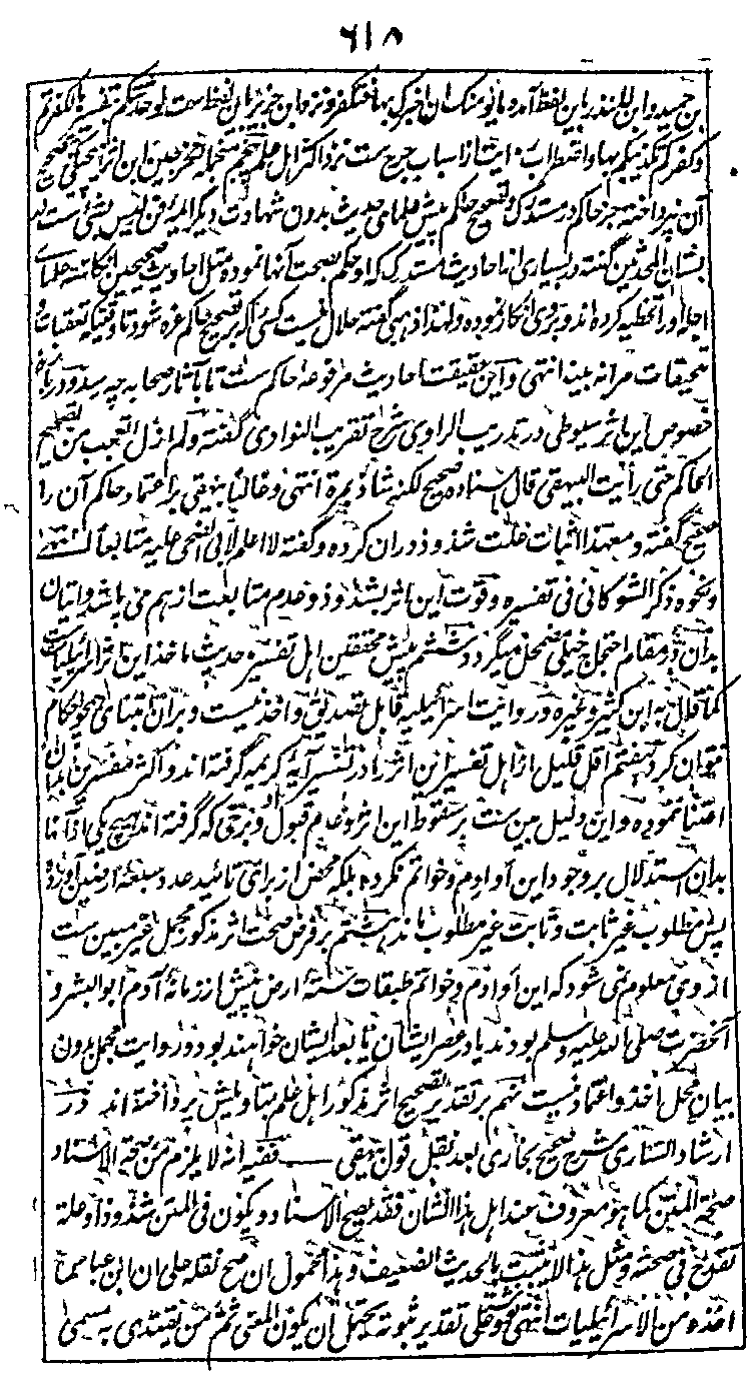 ۶۱۸
بن حمید و ابن المنذر باین لفظ آمده و ابن جریر باین لفظ ست لو حدثتکم بتفسیرها لکفرتم
و کفرکم تکذیبکم بها و اضطراب روایت از اسباب جرح ست نزد اکثر اهل علم پنجم منجمله مخرجین این اثر هیچ یکی بتصحیح
آن نپرداخته جز حاکم در مستدرک و تصحیح حاکم پیش علمای حدیث بدون شهادت دیگر ائمه فن لیس بشئ ست در
بستان المحدثین گفته در بسیاری از احادیث مستدرک که او حکم بصحت آنها نموده مثل احادیث صحیحین انگاشته علمای
اجله او را تخطیه کرده اند و بروی انکار نموده و لهذا ذهبی گفته حلال نیست کسی را که بر تصحیح حاکم غره شود تا وقتیکه تعقبات و
تحقیقات مرا نه بیند انتهی و این حقیقت احادیث مرفوعه حاکم ست تا بآثار صحابه چه رسد و در باره
خصوص این اثر سیوطی در تدریب الراوی شرح تقریب النواوی گفته و لم ازل اتعجب من تصحیح
الحاکم حتی رأیت البیهقی قال اسناده صحیح لکنه شاذ بمرة انتهی و غالبا بیهقی بر اعتماد حاکم آن را
صحیح گفته و معهذا اثبات علت شذوذ در ان کرده و گفته لا اعلم لابی الضحی علیه متابعا انتهی
و نحوه ذکر الشوکانی فی تفسیره و قوت این اثر بشذوذ و عدم متابعت از هم می پاشد و اتیان
بدان در مقام احتجاج خیلی مضمحل میگردد ششم پیش محققین اهل تفسیر و حدیث ماخذ این اثر اسرائیلیات ست
کما قال به ابن کثیر و غیره و روایت اسرائیلیه قابل تصدیق و اخذ نیست و بران ابتنای احکام
نتوان کرد هفتم اقل قلیل از اهل تفسیر این اثر را در تفسیر آیه کریمه گرفته اند و اکثر مفسرین بدان
اعتنا ننموده و این دلیل بین ست بر سقوط این اثر و عدم قبول او و برخی که گرفته اند هیچ یکی از آنها
بدان استدلال بر وجود این أوادم و خواتم نکرده بلکه محض از برای تائید عدد سبعه ارضین آورده
پس مطلوب غیر ثابت و ثابت غیر مطلوب ماند هشتم بر فرض صحت اثر مذکور مجمل غیر مبین ست
از وی معلوم نمی شود که این أوادم و خواتم طبقات سته ارض پیش از زمانه آدم ابو البشر و
آنحضرت صلی الله علیه و سلم بودند یا در عصر ایشان یا بعد ایشان خواهند بود و روایت مجمل بدون
بیان محل اخذ و اعتماد نیست نهم بر تقدیر تصحیح اثر مذکور اهل علم بتاویلش پرداخته اند در
ارشاد الساری شرح صحیح بخاری بعد نقل قول بیهقی ــــ ففیه انه لا یلزم من صحة الاسناد
صحة المتن کما هو معروف عند اهل هذا الشان فقد یصح الاسناد و یکون فی المتن شذوذ او علة
تقدح فی صحته و مثل هذا لا یثبت بالحدیث الضعیف و هذا محمول ان صح نقله علی ان ابن عباس
اخذه من الاسرائیلیات انتهی و علی تقدیر ثبوته یحتمل ان یکون المعنی ثم من یقتدی به یسمی